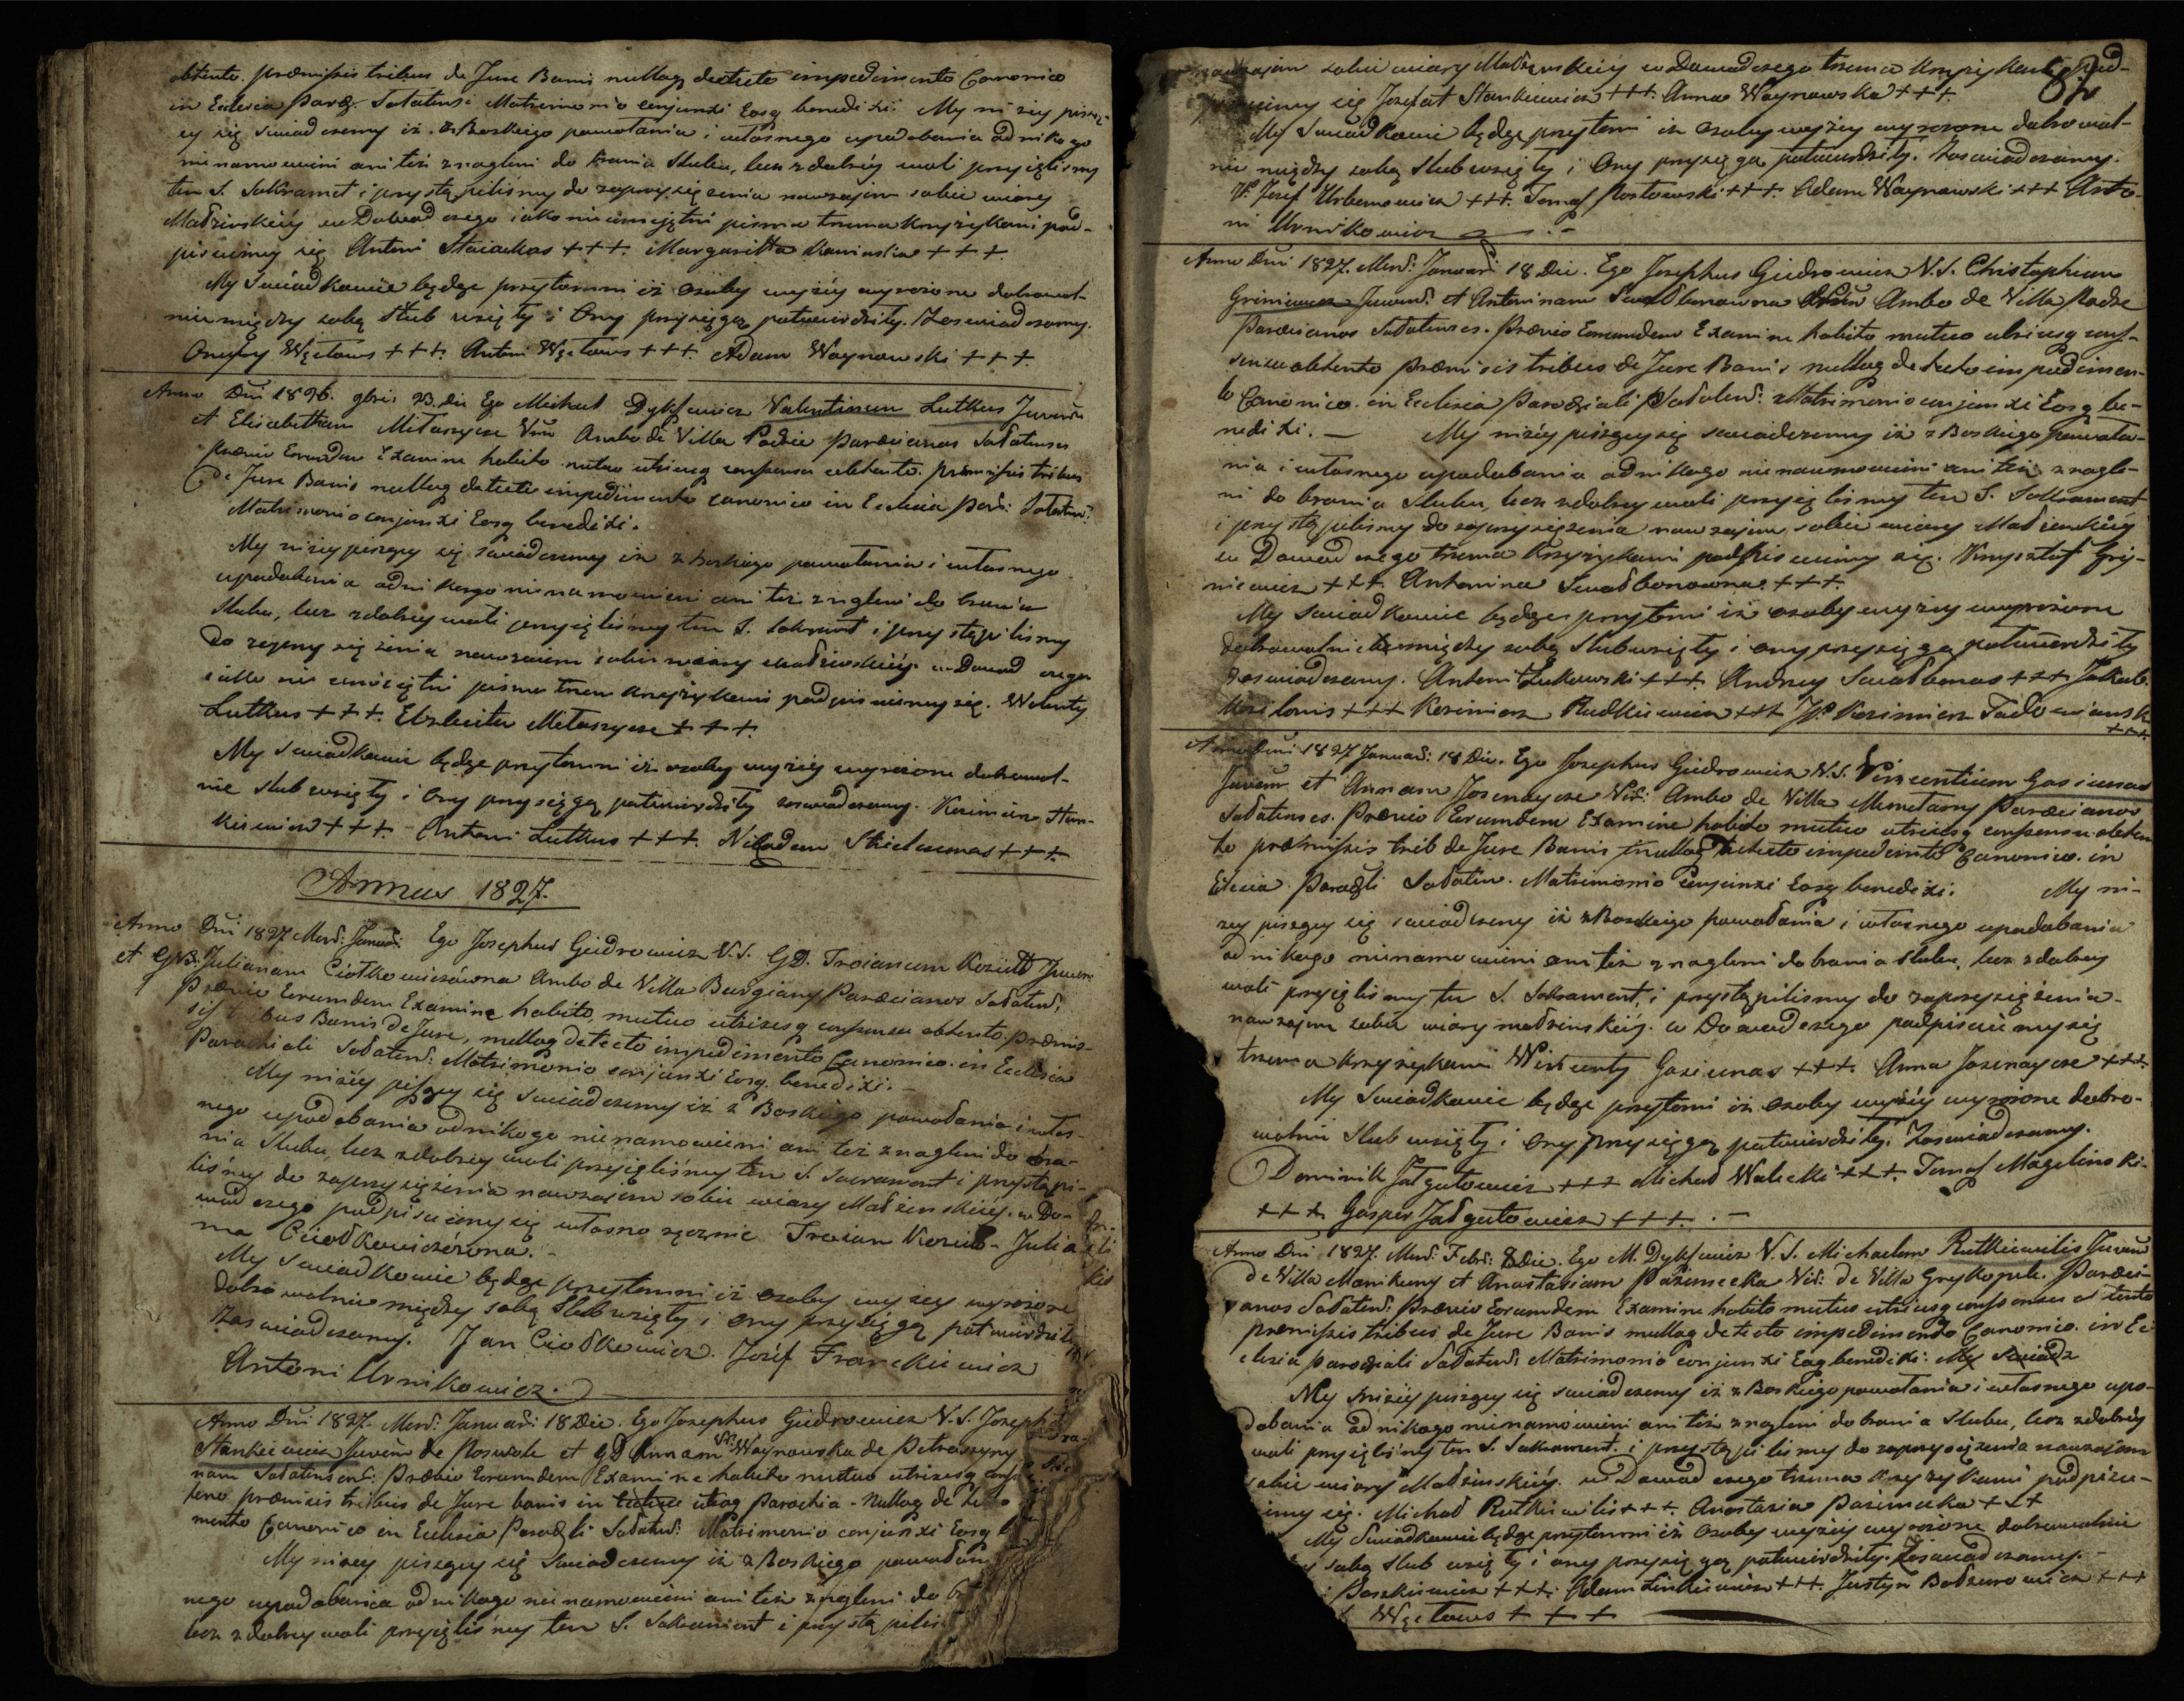 obtento. præmissis tribus de Jure Banis nullaq detecto impedimento Canonico
in Eclesia Paroch. Sałatensi Matrimonio conjunxi Eosq benedixi. My niżey piszą-
cy się swiadczemy iż z Boskiego powołania i własnego upodobania od nikogo
nie namowieni ani też znagleni do brania Slubu, lecz z dobréy woli przyięliśmy
ten S. Sakrament i przystąpiliśmy do zaprzysiężenia nawzajem sobie wiary
Małżenskiéy w Dowod czego iako nieumiejętni pisma trzema krzyżykami pod-
pisuiemy się Antoni Staiackas +++. Margaritta Kaminska +++.
My Swiadkowie będąc przytomni iż osoby wyżéy wyrożone dobrowol-
nie między sobą słub wzięły i Ony przysięgą potwierdziły. Zaswiadczamy.
Onufry Węcławs +++. Antoni Węcławs +++. Adam Woynowski +++.
Anno Dni 1826. 9bris 23. die Ego Michael Dyksewicz Valentinum Lutkus Juvenem
et Elisabetham Mitaszyce Vir. Ambo de Villa Podzie Paræcianos Sałatenses
Prævio Eorundem Examine habito mutuo utriusq consensu obtento. præmissis tribus
de Jure Banis nullaq detecto impedimento canonico in Eclesia Par: Sałaten:
Matrimonio conjunxi Eosq benedixi.
My niżey piszący się swiadczemy iż z Boskiego powołania i własnego
upodobania od nikogo nie namowieni ani też znagleni do brania
Slubu, lecz z dobrey woli przyięliśmy ten S. Sakrament i przystąpilismy
do zaprzysiężenia nawzaiem sobie wiary małżenskiéy. w Dowod czego
iako nie umieiętni pisma trzema krzyżykami podpisuiemy się. Walenty
Lutkus +++. Elzbieta Mitaszyce +++.
My swiadkowie będąc przytomni iż osoby wyżéy wyrożone dobrowol-
nie slub wzięły i Ony przysięgą potwierdziły zaswiadczamy. Kazimierz Stan-
kiewicz +++. Antoni Lutkus +++. Nikodem +++.
Annus 1827.
Anno Dni 1827 Mens: Januar: Ego Josephus Giedrowicz V.S. GD. Troianum Koziełł Juvenem
et GD. Julianam Ciołkowiczówna Ambo de Villa Burgiany Paræcianos Sałaten:
Prævio Eorumdem Examine habito, mutuo utriusq consensu obtento. Præmis-
sis tribus Banis de Jure, nullaq detecto impedimento Canonico. in Eclesia
Parochiali Sałaten: Matrimonio conjunxi Eosq. benedixi.-
My niżey piszący się swiadczemy iż z Boskiego powołania i włas-
nego upodobania od nikogo nie namowieni ani też znagleni do bra-
nia Slubu, lecz z dobrey woli przyięliśmy ten S. Sacrament i przystąpi-
liśmy do zaprzysiężenia nawzajem sobie wiary Małżenskiéy. w Do-
wod czego podpisuiemy się własno ręcznie Troian Koziełł - Julia
na Ciołkowiczówna.-
My swiadkowie będąc przytomni iż osoby wyżey wyrożone
dobrowolnie między sobą slub wzięły i ony przysięgą potwierdziły
Zaswiadczamy. Jan Ciołkowicz. Józef Franckiewicz
Antoni Urnikowicz.
Anno Dni 1827. Mens: Januari: 18 Die. Ego Josephus Giedrowicz V.S. Joseph
Stankiewicz Juvenem de Poswole et GD Annam Vir: Woynowska de Petraszyny
nam Sałatensem: Prævio Eorumdem Examine habito mutuo utriusq cons
tento præmisis tribus de Jure banis in utraq Parochia - Nullaq dete
mento Canonico in Eclesia Parochli Sałaten: Matrimonio conjunxi Eosq b
My niżey piszący się Swiadczemy iż z Boskiego powołan
nego upodobania od nikogo nie namowieni ani też znagleni do b
lecz z dobrey woli przyięliśmy ten S. Sakrament i przystąpilis
nawzajem sobie wiary Małżenskiéy w Dowod czego trzema krzyżykami pod-
pisuiemy się Jozefat Stankiewicz +++. Anna Woynowska +++.
My Swiadkowie będąc przytomni iż osoby wyżéy wyrożone dobrowol-
nie między sobą slub wzięły i Ony przysięgą potwierdziły. Zaswiadczamy.
Jozef Urbanowicz +++. Tomasz Rostowski +++. Adam Woynowski +++ Anto-
ni Urnikowicz
Anno Dni 1827. Mens: Januari: 18 Die. Ego Josephus Giedrowicz V.S. Christophum
Griniewicz Juvenem et Antoninam Szwałbonowna Ambo de Villa Podze
Paræcianos Sałatenses. Prævio Eorumdem Examine habito mutuo utriusq con-
sensu obtento Præmisis tribus de Jure Banis nullaq detecto impedimen-
to Canonico in Eclesia Parochiali Sałaten: Matrimonio conjunxi Eosq be-
nedixi. - My niżéy piszący się swiadczemy iż z Boskiego powoła-
nia i własnego upodobania od nikogo nie namowieni ani też znagle-
ni do brania Slubu, lecz z dobrey woli przyięlismy ten S. Sakrament
i przystąpilismy do zaprzysiężenia nawzajem sobie wiary Małżenskiéy
w Dowod czego trzema krzyżykami podpisuiemy się. Krzysztof Gry-
niewicz +++. Antonina Szwałbonowna +++.
My swiadkowie będąc przytomi iż osoby wyżey wyrożone
dobrowolnie między sobą Slub wzięły i ony przysięgą potwierdziły
Zaswiadczamy. Antoni Łukowski +++. Andrzey Szwałbonas +++ Jakub
+++ Kazimierz Rudkiewicz +++ Kazimierz
+++
Anno Dni 1827 Januari: 18 Die. Ego Josephus Giedrowicz V.S. Vincentium Gasiunas
Juvenem et Annam Joznayce Vir: Ambo de Villa Minetany Paræcianos
Sałatenses. Prævio Eorumdem Examine habito mutuo utriusq consensu obten
to præmissis trib de Jure Banis nullaq detecto impedimto Canonico. in
Eclesia Parochli Sałaten. Matrimonio Conjunxi Eosq benedixi. My ni-
żey piszący się swiadczemy iż z Boskiego powołania i własnego upodobania
od nikogo nienamowieni ani też znagleni do brania slubu, lecz z dobrey
woli przyięliśmy ten S. Sakrament, i przystąpilismy do zaprzysiężenia
nawzajem sobie wiary małżenskiéy. w Dowod czego podpisuiemy się
trzema krzyżykami Wincenty Gasiunas +++. Anna Joznayce +++.
My Swiadkowie będąc przytomi iż osoby wyżéy wyrożone dobro-
wolnie Slub wzięły i ony przysięgą potwierdziły. Zaswiadczamy.
Dominik Jałgutowicz +++ Michał Walecki +++. Tomasz Mazelinski
+++ Gasper Jałgutowicz +++. -
Anno Dni 1827. Mens: Febr: 8 Die. Ego M. Dyksewicz V.S. Michaelem Rutkiewilis Juvenem
de Villa Monikuny et Anastasiam Pazimecka Vir: de Villa Grykopele. Paræci-
anos Sałaten: Prævio Eorumdem Examine habito mutuo utriusq consensu obtento
præmissis tribus de Jure Banis nullaq detecto impedimento Canonico. in Ec
clesia Parochiali Sałaten: Matrimonio conjunxi Eosq benedixi. My Swiadz
My niżéy piszący się swiadczemy iż z Boskiego powołania i własnego upo-
dobania od nikogo nienamowieni ani też znagleni do brania Slubu, lecz z dobréy
woli przyięliśmy ten S. Sakrament. i przystąpilismy do zaprzysiężenia nawzajem
sobie wiary Małżenskiéy. w Dowod czego trzema krzyżykami podpisu-
iemy się. Michał Rutkiewilis +++. Anastazia Pazimecka +++
My Swiadkowie będąc przytomni iż osoby wyżéy wyrożone dobrowolnie
sobą Slub wzięły i ony przysięgą potwierdziły. Zaswiadczamy. -
Paszkiewicz +++. Adam Linkiewicz +++. Justyn Bołzurowicz +++
Węcławs +++